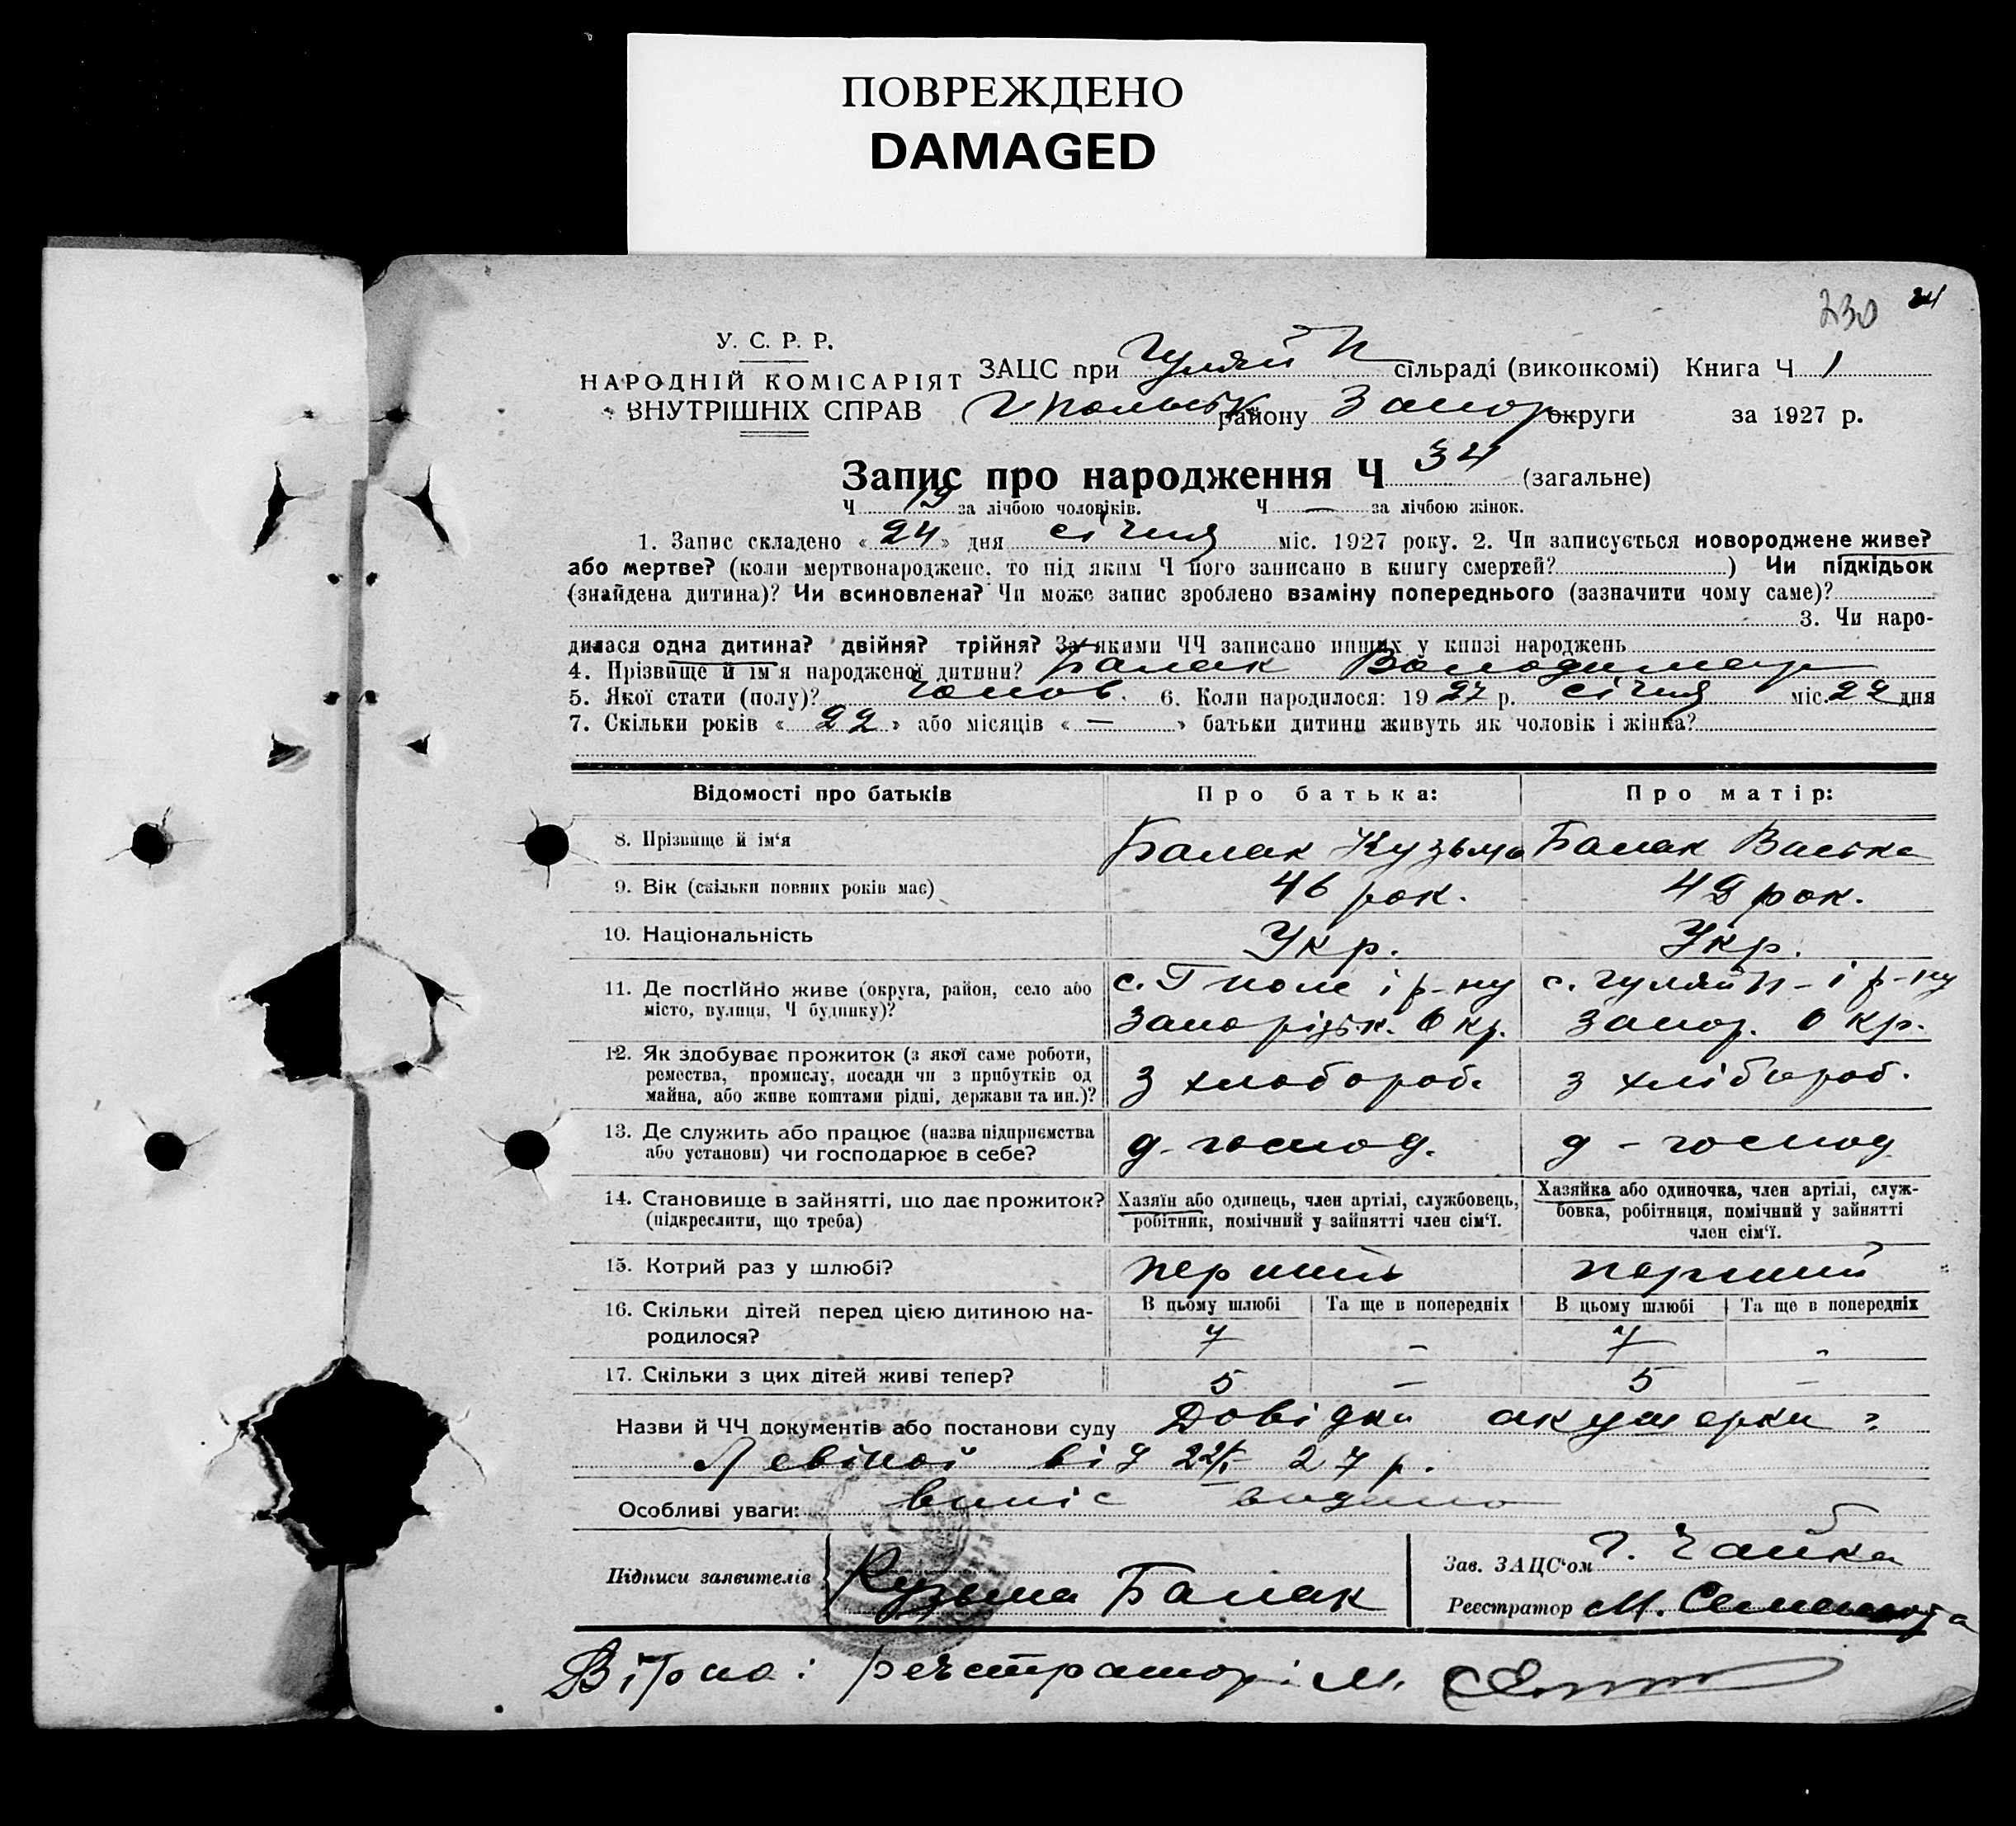 ПОВРЕЖДЕНО
DAMAGED
230 24
У. С. Р. Р.
НАРОДНІЙ КОМІСАРІЯТ
ВНУТРІШНІХ СПРАВ
ЗАЦС при Гуляй П сільраді (виконкомі) Книга Ч 1
Г Польськ району Запор округи за 1927 р.
Запис про народження Ч 34 (загальне)
Ч 19 за лічбою чоловіків. Ч — за лічбою жінок.
1. Запис складено « 24 » дня січня міс. 1927 року. 2. Чи записується новороджене живе?
або мертве? (коли мертвонароджене, то під яким Ч його записано в книгу смертей? ) Чи підкідьок
(знайдена дитина)? Чи всиновлена? Чи може запис зроблено взаміну попереднього (зазначити чому саме)?
3. Чи наро-
дилася одна дитина? двійня? трійня? За якими ЧЧ записано инших у книзі народжень
4. Прізвище й ім'я народженої дитини? Балак Володимер
5. Якої стати (полу)? чолов. 6. Коли народилося: 1927 р. січня міс. 22 дня
7. Скільки років « 22 » або місяців « — » батьки дитини живуть як чоловік і жінка?
Відомості про батьків Про батька: Про матір:
8. Прізвище й ім'я Балак Кузьма Балак Васька
9. Вік (скільки повних років має) 46 рок. 42 рок.
10. Національність Укр. Укр.
11. Де постійно живе (округа, район, село або
місто, вулиця, Ч будинку)?
с. Г поле і р-ну
Запорізьк. Окр.
с. Гуляйп- і р-ну
Запор. Окр.
12. Як здобуває прожиток (з якої саме роботи,
ремества, промислу, посади чи з прибутків од
майна, або живе коштами рідні, держави та ин.)?
з хлібороб. з хлібороб.
13. Де служить або працює (назва підприємства
або установи) чи господарює в себе?
д-господ. д-господ
14. Становище в зайнятті, що дає прожиток?
(підкреслити, що треба)
Хазяїн або одинець, член артілі, службовець,
робітник, помічний у зайнятті член сім'ї.
Хазяйка або одиночка, член артілі, служ-
бовка, робітниця, помічний у зайнятті
член сім'ї.
15. Котрий раз у шлюбі? перший перший
16. Скільки дітей перед цією дитиною на-
родилося?
В цьому шлюбі Та ще в попередніх В цьому шлюбі Та ще в попередніх
7 - 7 -
17. Скільки з цих дітей живі тепер? 5 — 5 —
Назви й ЧЧ документів або постанови суду Довідки акушерки
Левіної від 22/I 27 р.
Особливі уваги: випіс видано
Підписи заявителів Кузьма Балак
Зав. ЗАЦС'ом Г. Чайка
Реєстратор М.
Вірно: реєстратор: М.